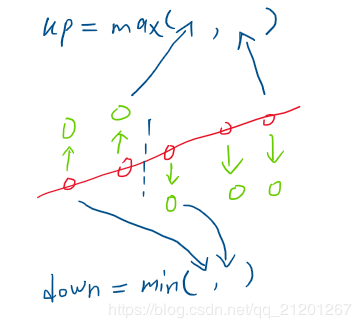 up = max( , )
down = min( , )
https://blog.csdn.net/qq_21201267